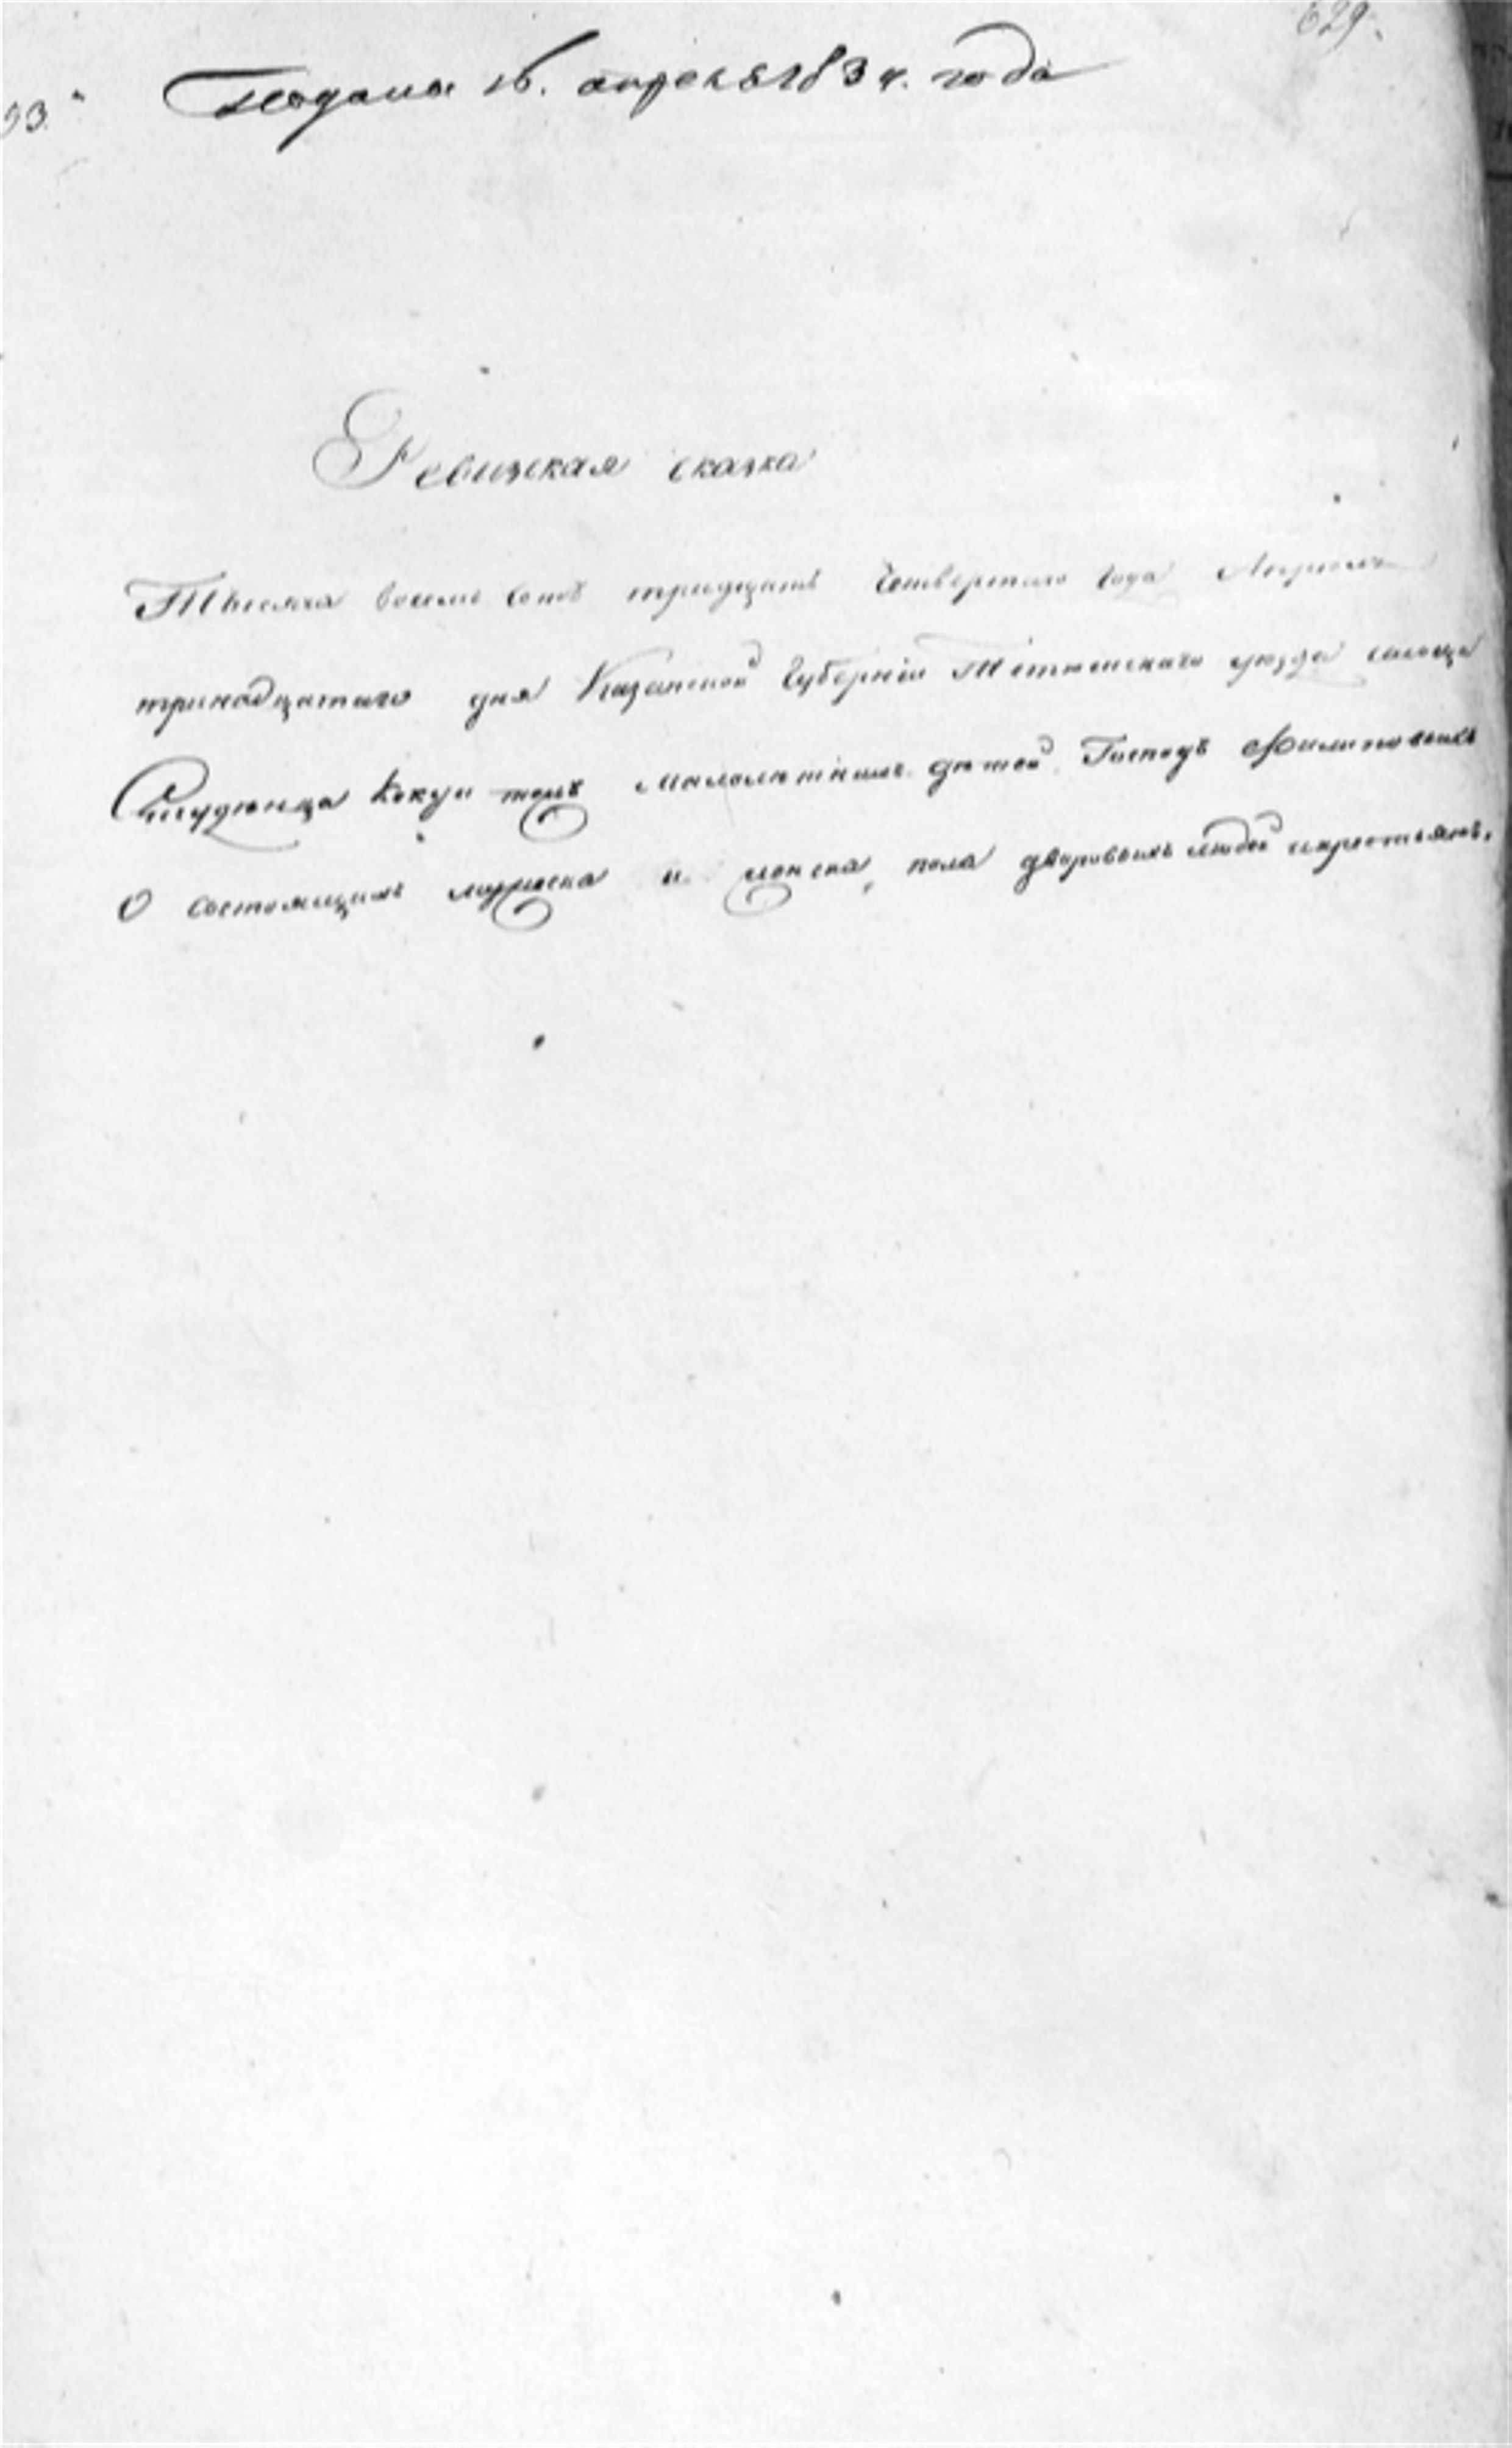 629.
93.
Подана 16. апреля 1834. года
Ревизская сказка
Тысяча восемь сотъ тридцать четвертаго года Апреля
тринадцатаго дня Казанской Губерніи Тетюшскаго уезда сельца
Студенца Кокуи тожъ малолетныхъ детей Господъ Филиповыхъ
О состоящихъ мужеска и женска пола дворовыхъ людей икрестьянъ.